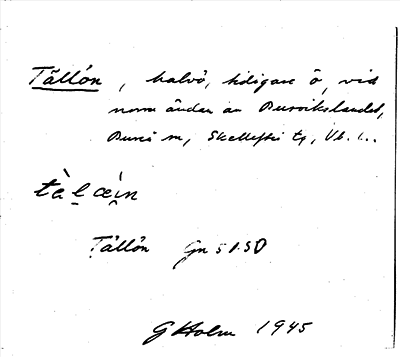 Tällön, halvö, tidigare ö, vid
norra ändan av Burvikslandet,
Bureå sn, Skellefteå tg, Vb. l..
Tällön Gn 51.50
G Holm 1945